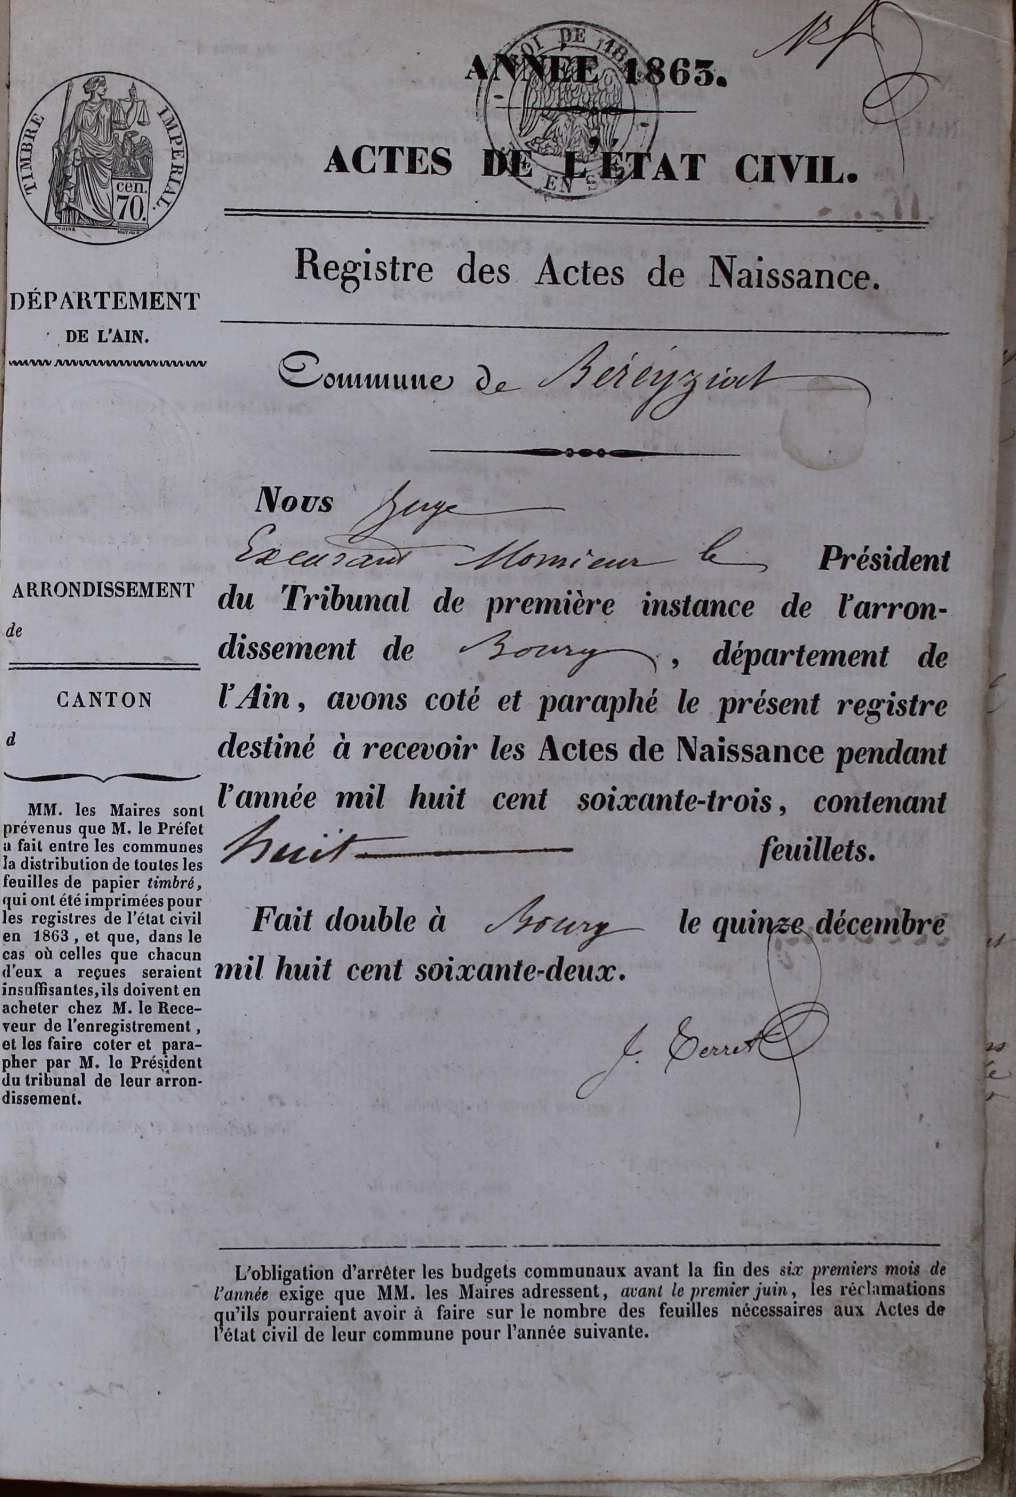 ANNÉE 1863.
ACTES DE L'ÉTAT CIVIL.
Registre des Actes de Naissance.
Commune de Béréyziat
TIMBRE IMPÉRIAL.
cen.
70.
DÉPARTEMENT
DE L'AIN.
ARRONDISSEMENT
de
CANTON
d
MM. les Maires sont
prévenus que M. le Préfet
a fait entre les communes
la distribution de toutes les
feuilles de papier timbré,
qui ont été imprimées pour
les registres de l'état civil
en 1863, et que, dans le
cas où celles que chacun
d'eux a reçues seraient
insuffisantes, ils doivent en
acheter chez M. le Rece-
veur de l'enregistrement,
et les faire coter et para-
pher par M. le Président
du tribunal de leur arron-
dissement.
Nous Juge
Excusant Monsieur le Président
du Tribunal de première instance de l'arron-
dissement de Bourg, département de
l'Ain, avons coté et paraphé le présent registre
destiné à recevoir les Actes de Naissance pendant
l'année mil huit cent soixante-trois, contenant
huit feuillets.
Fait double à Bourg le quinze décembre
mil huit cent soixante-deux.
J. Terret
L'obligation d'arrêter les budgets communaux avant la fin des six premiers mois de
l'année exige que MM. les Maires adressent, avant le premier juin, les réclamations
qu'ils pourraient avoir à faire sur le nombre des feuilles nécessaires aux Actes de
l'état civil de leur commune pour l'année suivante.